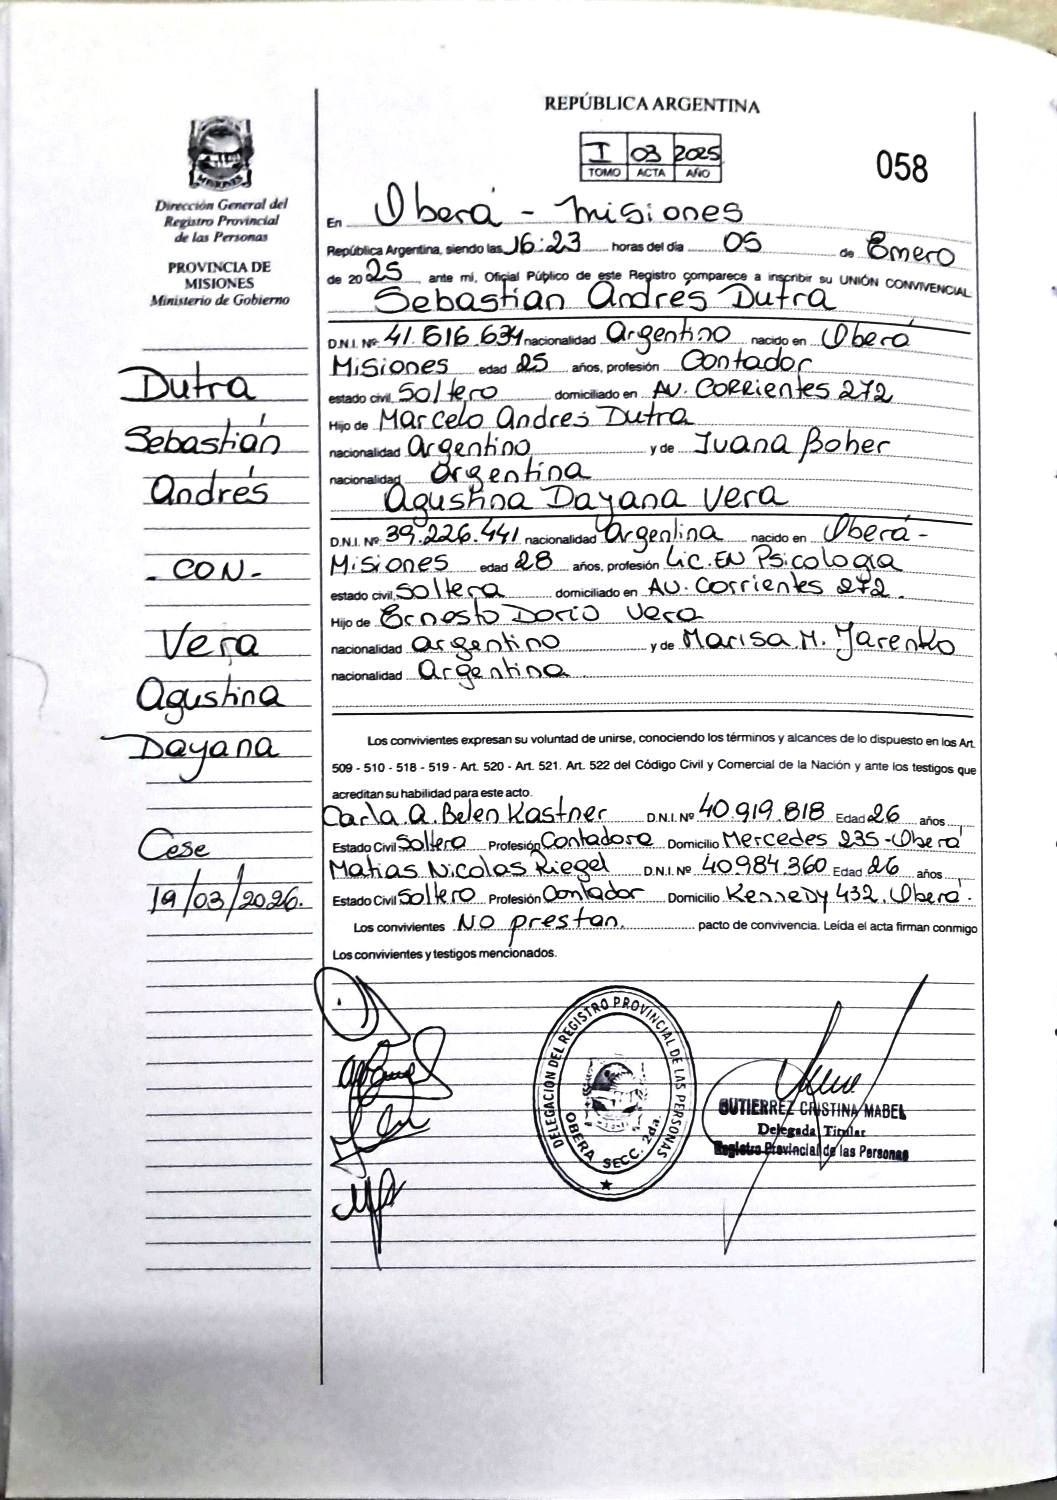 REPÚBLICA ARGENTINA
I 03 2025
TOMO ACTA AÑO
058
MISIONES
Dirección General del
Registro Provincial
de las Personas
PROVINCIA DE
MISIONES
Ministerio de Gobierno
Dutra
Sebastián
Andrés
- CON -
Vera
Agustina
Dayana
Cese
19/03/2026.
En Oberá - Misiones
República Argentina, siendo las 16:23 horas del día 05 de Enero
de 2025, ante mi, Oficial Público de este Registro comparece a inscribir su UNIÓN CONVIVENCIAL
Sebastián Andrés Dutra
D.N.I. Nº 41.616.634 nacionalidad Argentino nacido en Oberá
Misiones edad 25 años, profesión Contador
estado civil Soltero domiciliado en AV. Corrientes 272
Hijo de Marcelo Andres Dutra
nacionalidad argentino y de Juana Boher
nacionalidad argentina
Agustina Dayana Vera
D.N.I. Nº 39.226.441 nacionalidad argentina nacido en Oberá -
Misiones edad 28 años, profesión Lic. EN Psicología
estado civil soltera domiciliado en AV. Corrientes 272.
Hijo de Ernesto Dario Vera
nacionalidad argentino y de Marisa M. Jarenko
nacionalidad Argentina
Los convivientes expresan su voluntad de unirse, conociendo los términos y alcances de lo dispuesto en los Art.
509 - 510 - 518 - 519 - Art. 520 - Art. 521. Art. 522 del Código Civil y Comercial de la Nación y ante los testigos que
acreditan su habilidad para este acto.
Carla A. Belen Kastner D.N.I. Nº 40.919.818 Edad 26 años
Estado Civil Soltera Profesión Contadora Domicilio Mercedes 235 - Oberá
Matias Nicolas Riegel D.N.I. Nº 40.984.360 Edad 26 años
Estado Civil Soltero Profesión Contador Domicilio Kennedy 432, Oberá.
Los convivientes NO prestan. pacto de convivencia. Leída el acta firman conmigo
Los convivientes y testigos mencionados.
DELEGACION DEL REGISTRO PROVINCIAL DE LAS PERSONAS
OBERA SECC. 2da.
GUTIERREZ CRISTINA MABEL
Delegada Titular
Registro Provincial de las Personas